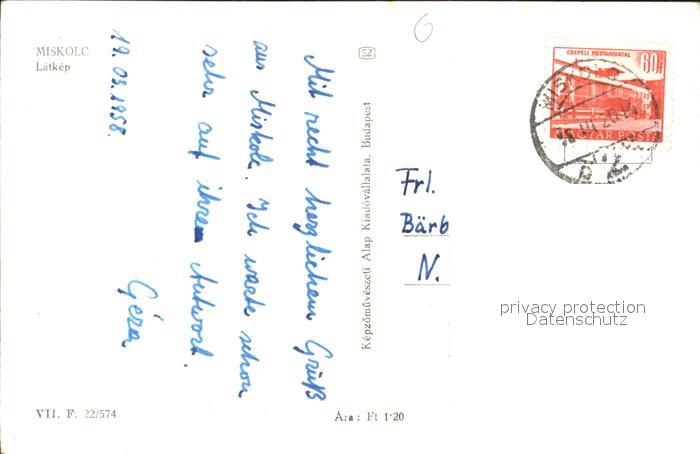 MISKOLC
Látkép
19.03.1958.
Mit recht herzlichem Gruß
aus Miskolc. Ich warte schon
sehr auf ihren Antwort.
Géza
VII. F. 22/574
Ára: Ft 1·20
Képzőművészeti Alap Kiadóvállalata, Budapest
SZ
6
CSEPELI POSTAHIVATAL
60f
MAGYAR POSTA
MISKOLC
Frl.
Bärb
N.
privacy protection
Datenschutz